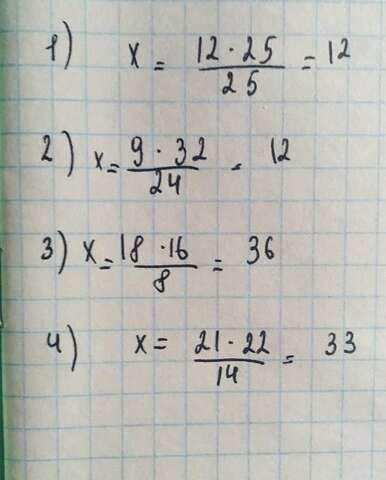 1) x = 12 · 25 / 25 = 12
2) x = 9 · 32 / 24 = 12
3) x = 18 · 16 / 8 = 36
4) x = 21 · 22 / 14 = 33